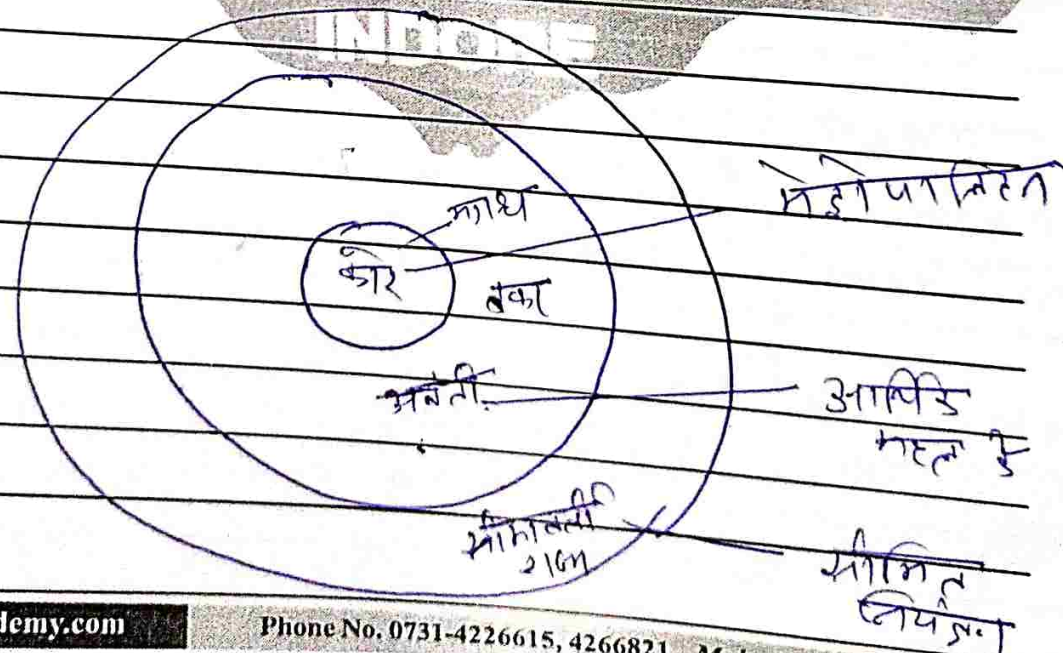 INDORE
मगध
कोर
मेट्रोपालिटन
अवंती
आर्थिक
महत्व के
सीमावर्ती
राज्य
सीमित
नियंत्रण
demy.com
Phone No. 0731-4226615, 4266821